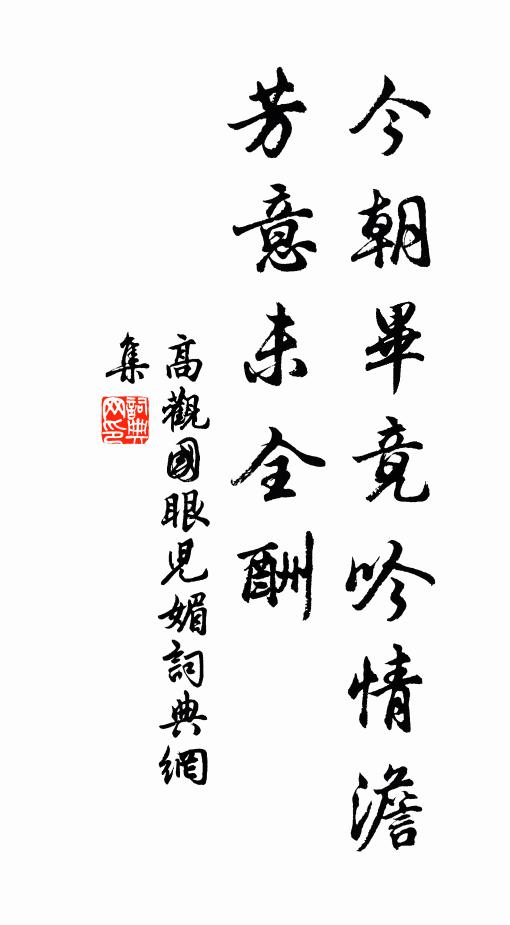 今朝畢竟吟情澹
芳意未全酬
高觀國眼児媚詞典網
集
詞典网印